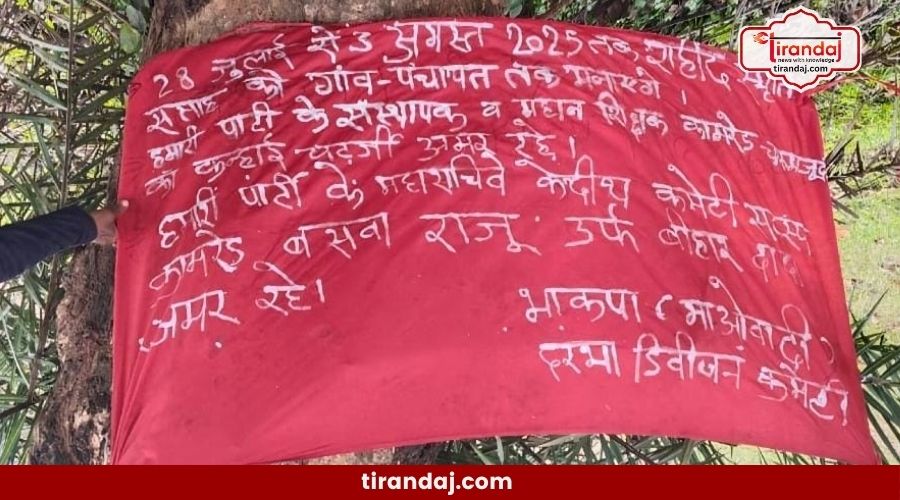 28 जुलाई से 3 अगस्त 2025 तक शहीद स्मृति
सप्ताह को गांव-पंचायत तक मनाएंगे।
हमारी पार्टी के संस्थापक व महान शिक्षक कामरेड-चारु मजूमदार
का कन्हाई-चटर्जी अमर रहे।
हमारी पार्टी के महासचिव केंद्रीय कमेटी सदस्य
कामरेड बसवा राजू उर्फ बीआर दादा
अमर रहे।
भाकपा (माओवादी)
दरभा डिवीजन कमेटी
Tirandaj
news with knowledge
tirandaj.com
tirandaj.com